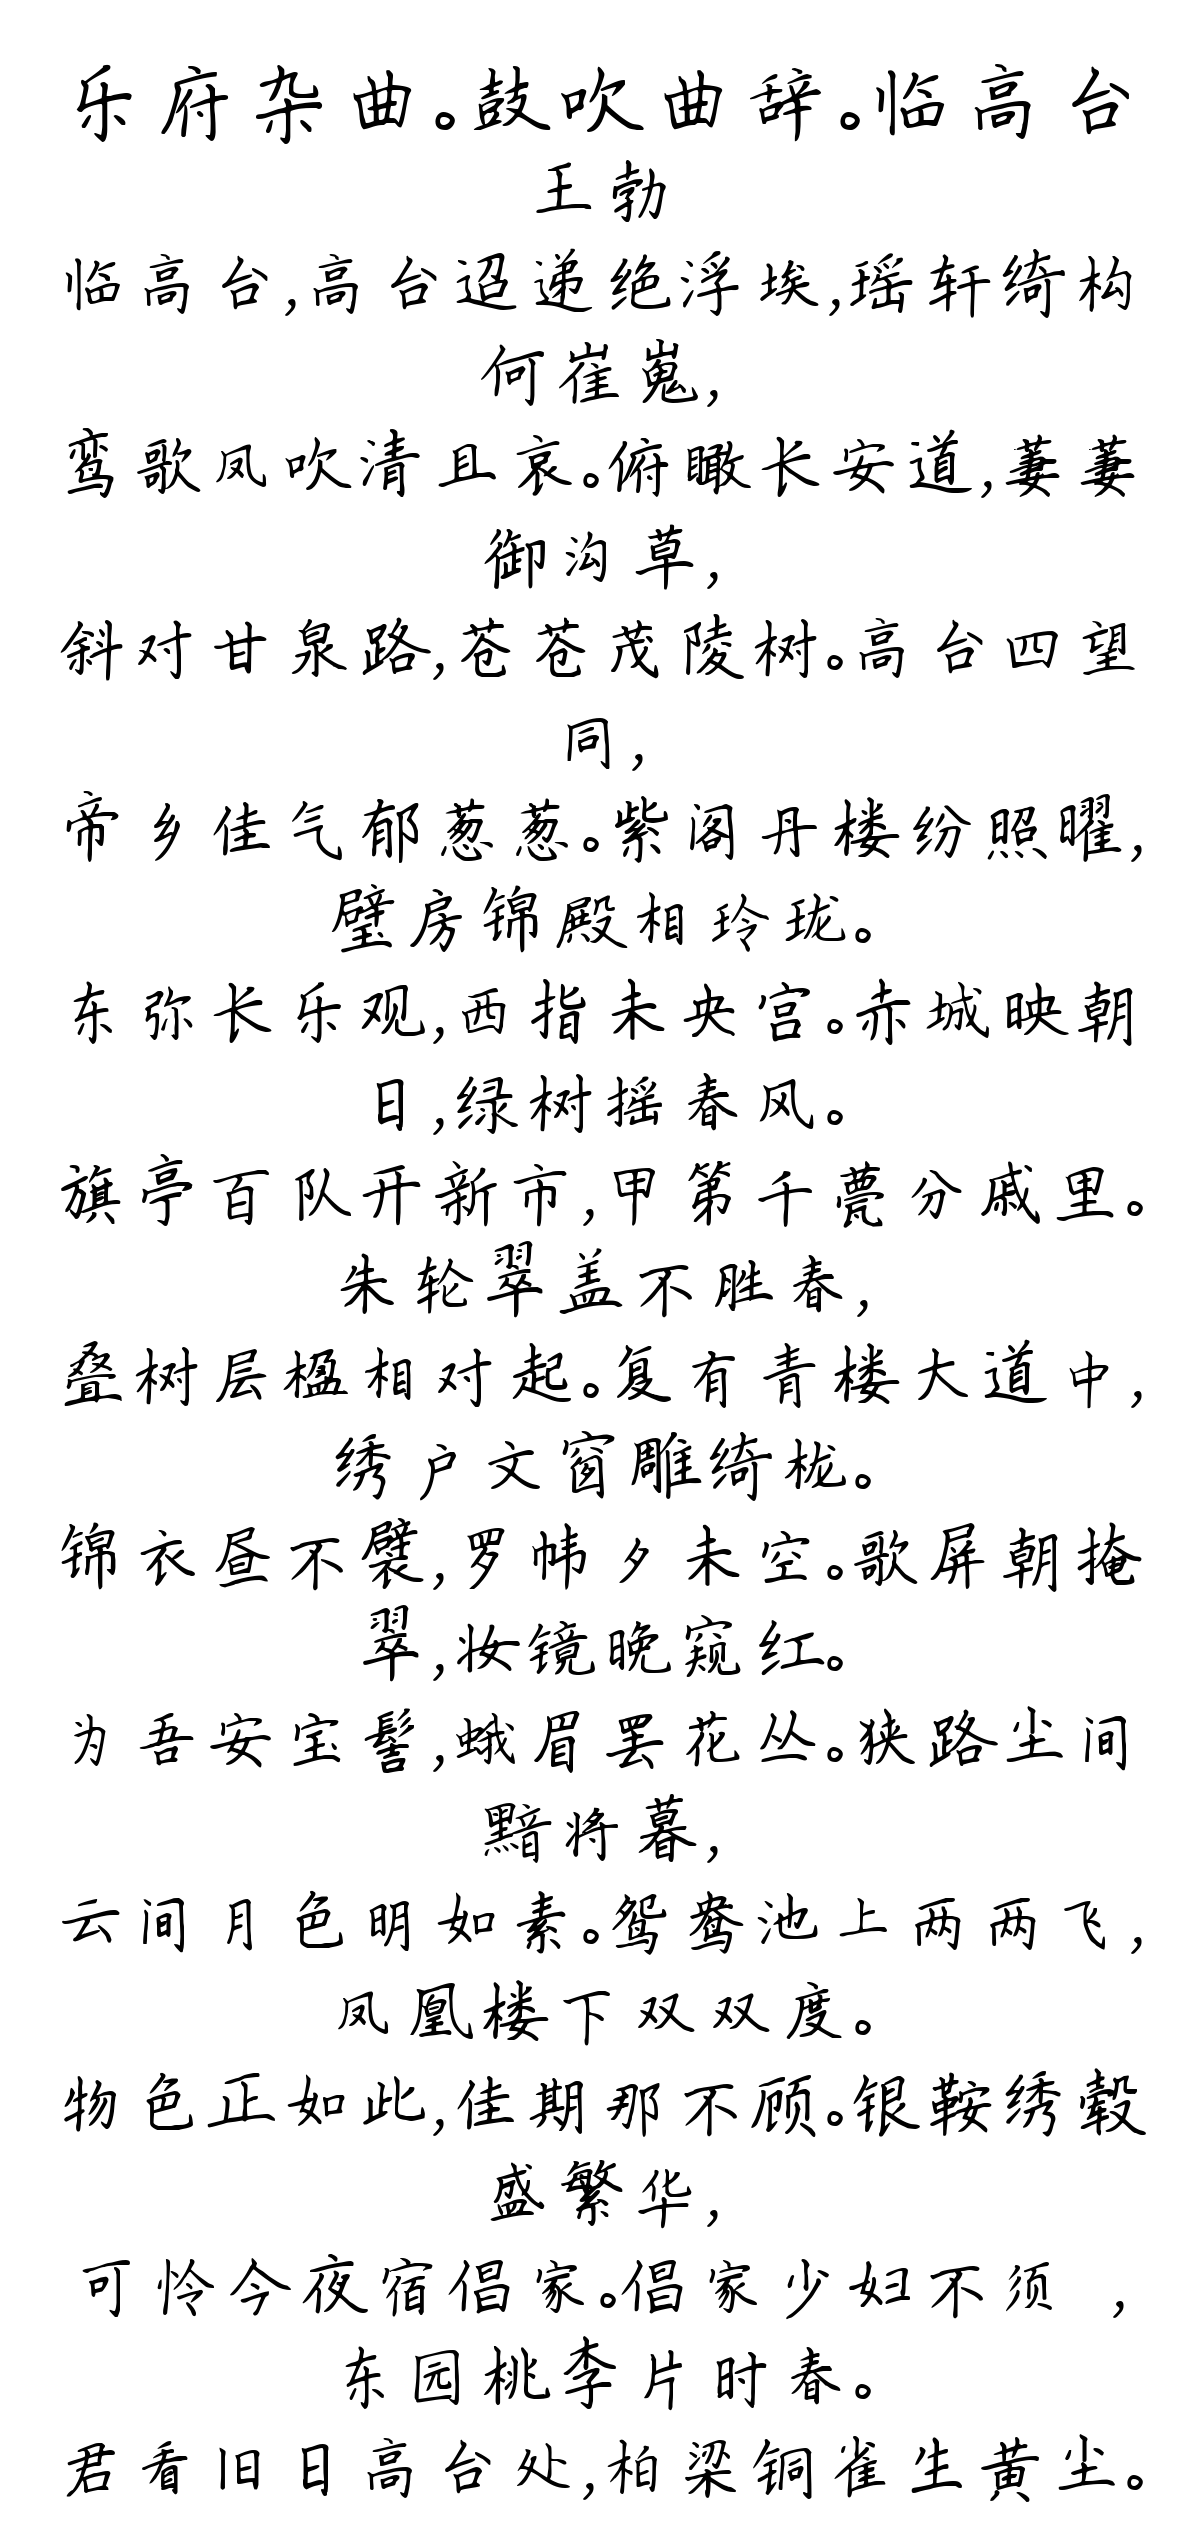 乐府杂曲。鼓吹曲辞。临高台
王勃
临高台,高台迢递绝浮埃,瑶轩绮构
何崔嵬,
鸾歌凤吹清且哀。俯瞰长安道,萋萋
御沟草,
斜对甘泉路,苍苍茂陵树。高台四望
同,
帝乡佳气郁葱葱。紫阁丹楼纷照曜,
璧房锦殿相玲珑。
东弥长乐观,西指未央宫。赤城映朝
日,绿树摇春风。
旗亭百队开新市,甲第千甍分戚里。
朱轮翠盖不胜春,
叠树层楹相对起。复有青楼大道中,
绣户文窗雕绮栊。
锦衣昼不襞,罗帏夕未空。歌屏朝掩
翠,妆镜晚窥红。
为吾安宝髻,蛾眉罢花丛。狭路尘间
黯将暮,
云间月色明如素。鸳鸯池上两两飞,
凤凰楼下双双度。
物色正如此,佳期那不顾。银鞍绣毂
盛繁华,
可怜今夜宿倡家。倡家少妇不须 ,
东园桃李片时春。
君看旧日高台处,柏梁铜雀生黄尘。